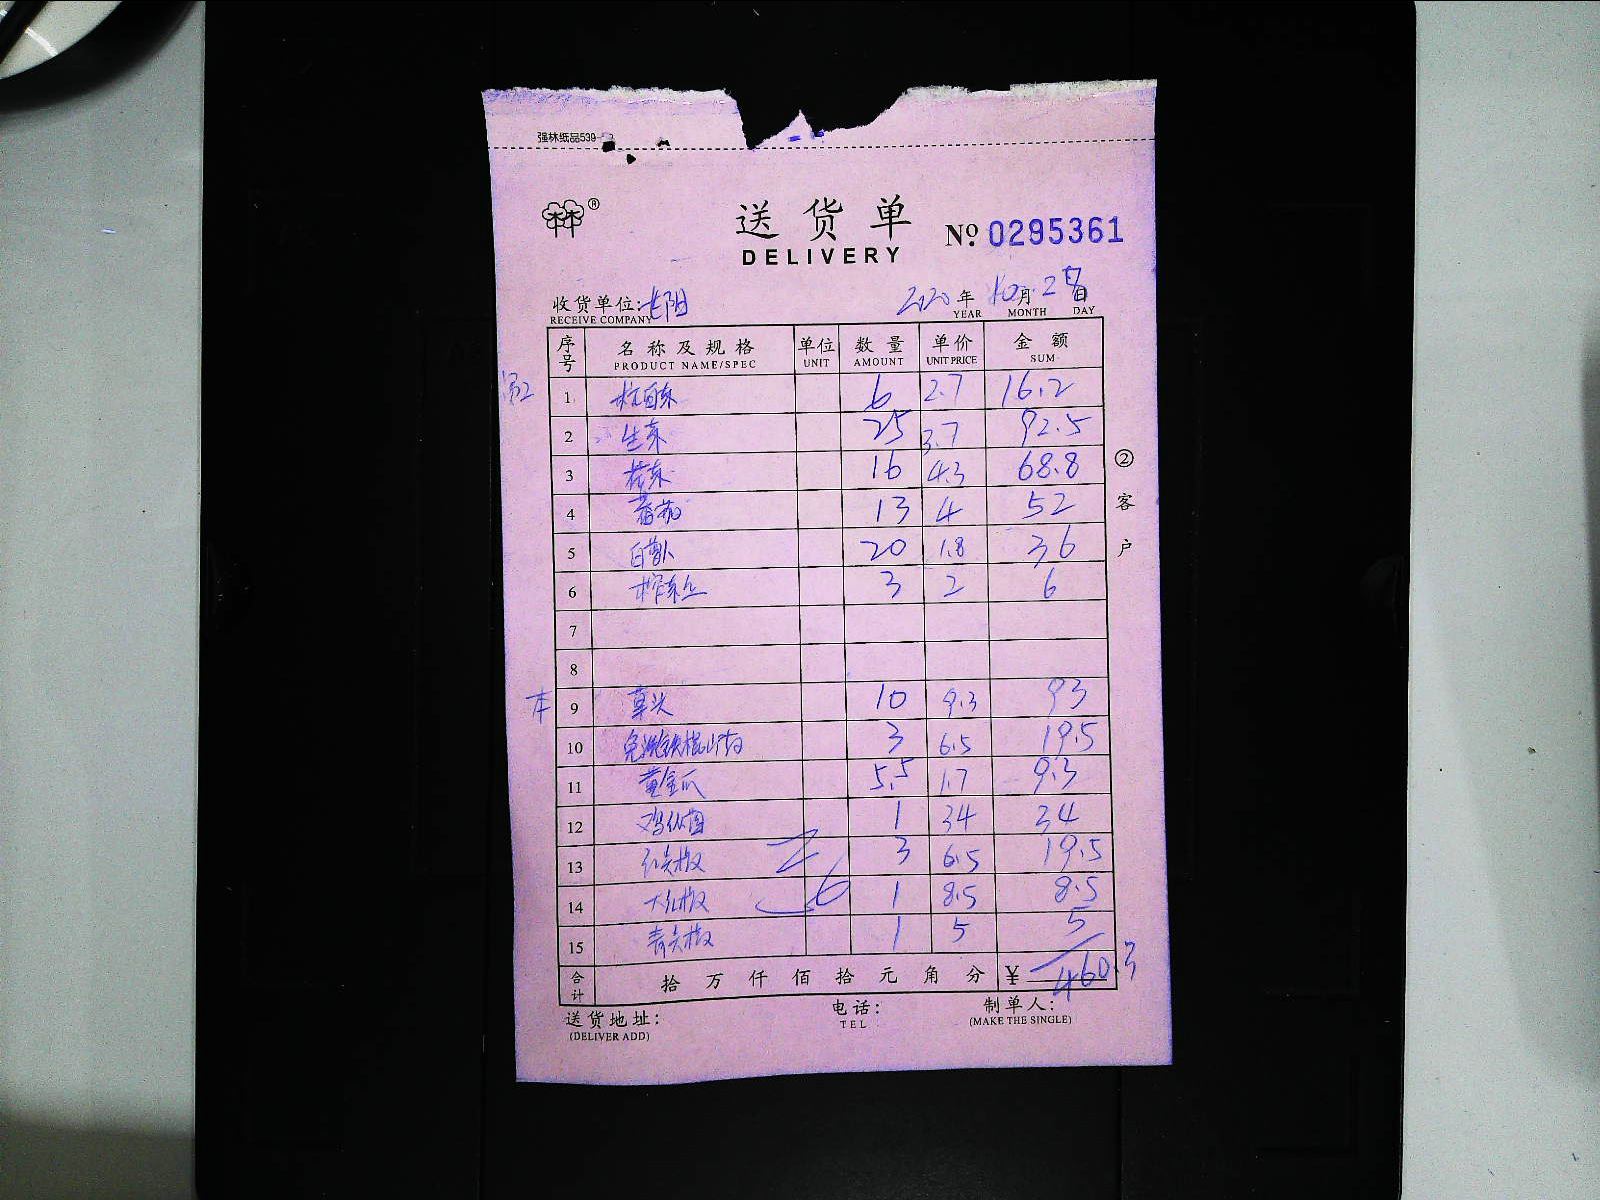 强林纸品539
®
送货单
DELIVERY
№ 0295361
收货单位: 长阳 2020年10月2日
RECEIVE COMPANY YEAR MONTH DAY
序号 名称及规格 单位 数量 单价 金额
PRODUCT NAME/SPEC UNIT AMOUNT UNIT PRICE SUM
1 杭白菜 6 2.7 16.2
2 生菜 25 3.7 92.5
3 花菜 16 4.3 68.8
4 番茄 13 4 52
5 白萝卜 20 1.8 36
6 榨菜丝 3 2 6
7
8
本 9 草头 10 9.3 93
10 免洗铁棍山药 3 6.5 19.5
11 黄金瓜 5.5 1.7 9.3
12 鸡枞菌 1 34 34
13 红尖椒 3 6.5 19.5
14 大红椒 1 8.5 8.5
15 青尖椒 1 5 5
合计 拾 万 仟 佰 拾 元 角 分 ¥ 460.3
②客户
送货地址: 电话: 制单人:
(DELIVER ADD) TEL (MAKE THE SINGLE)